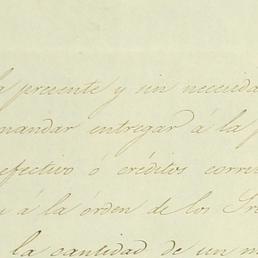 la presente y sin necesida
mandar entregar á la p
efectivo ó créditos corri
á la órden de los Sre
la cantidad de un m